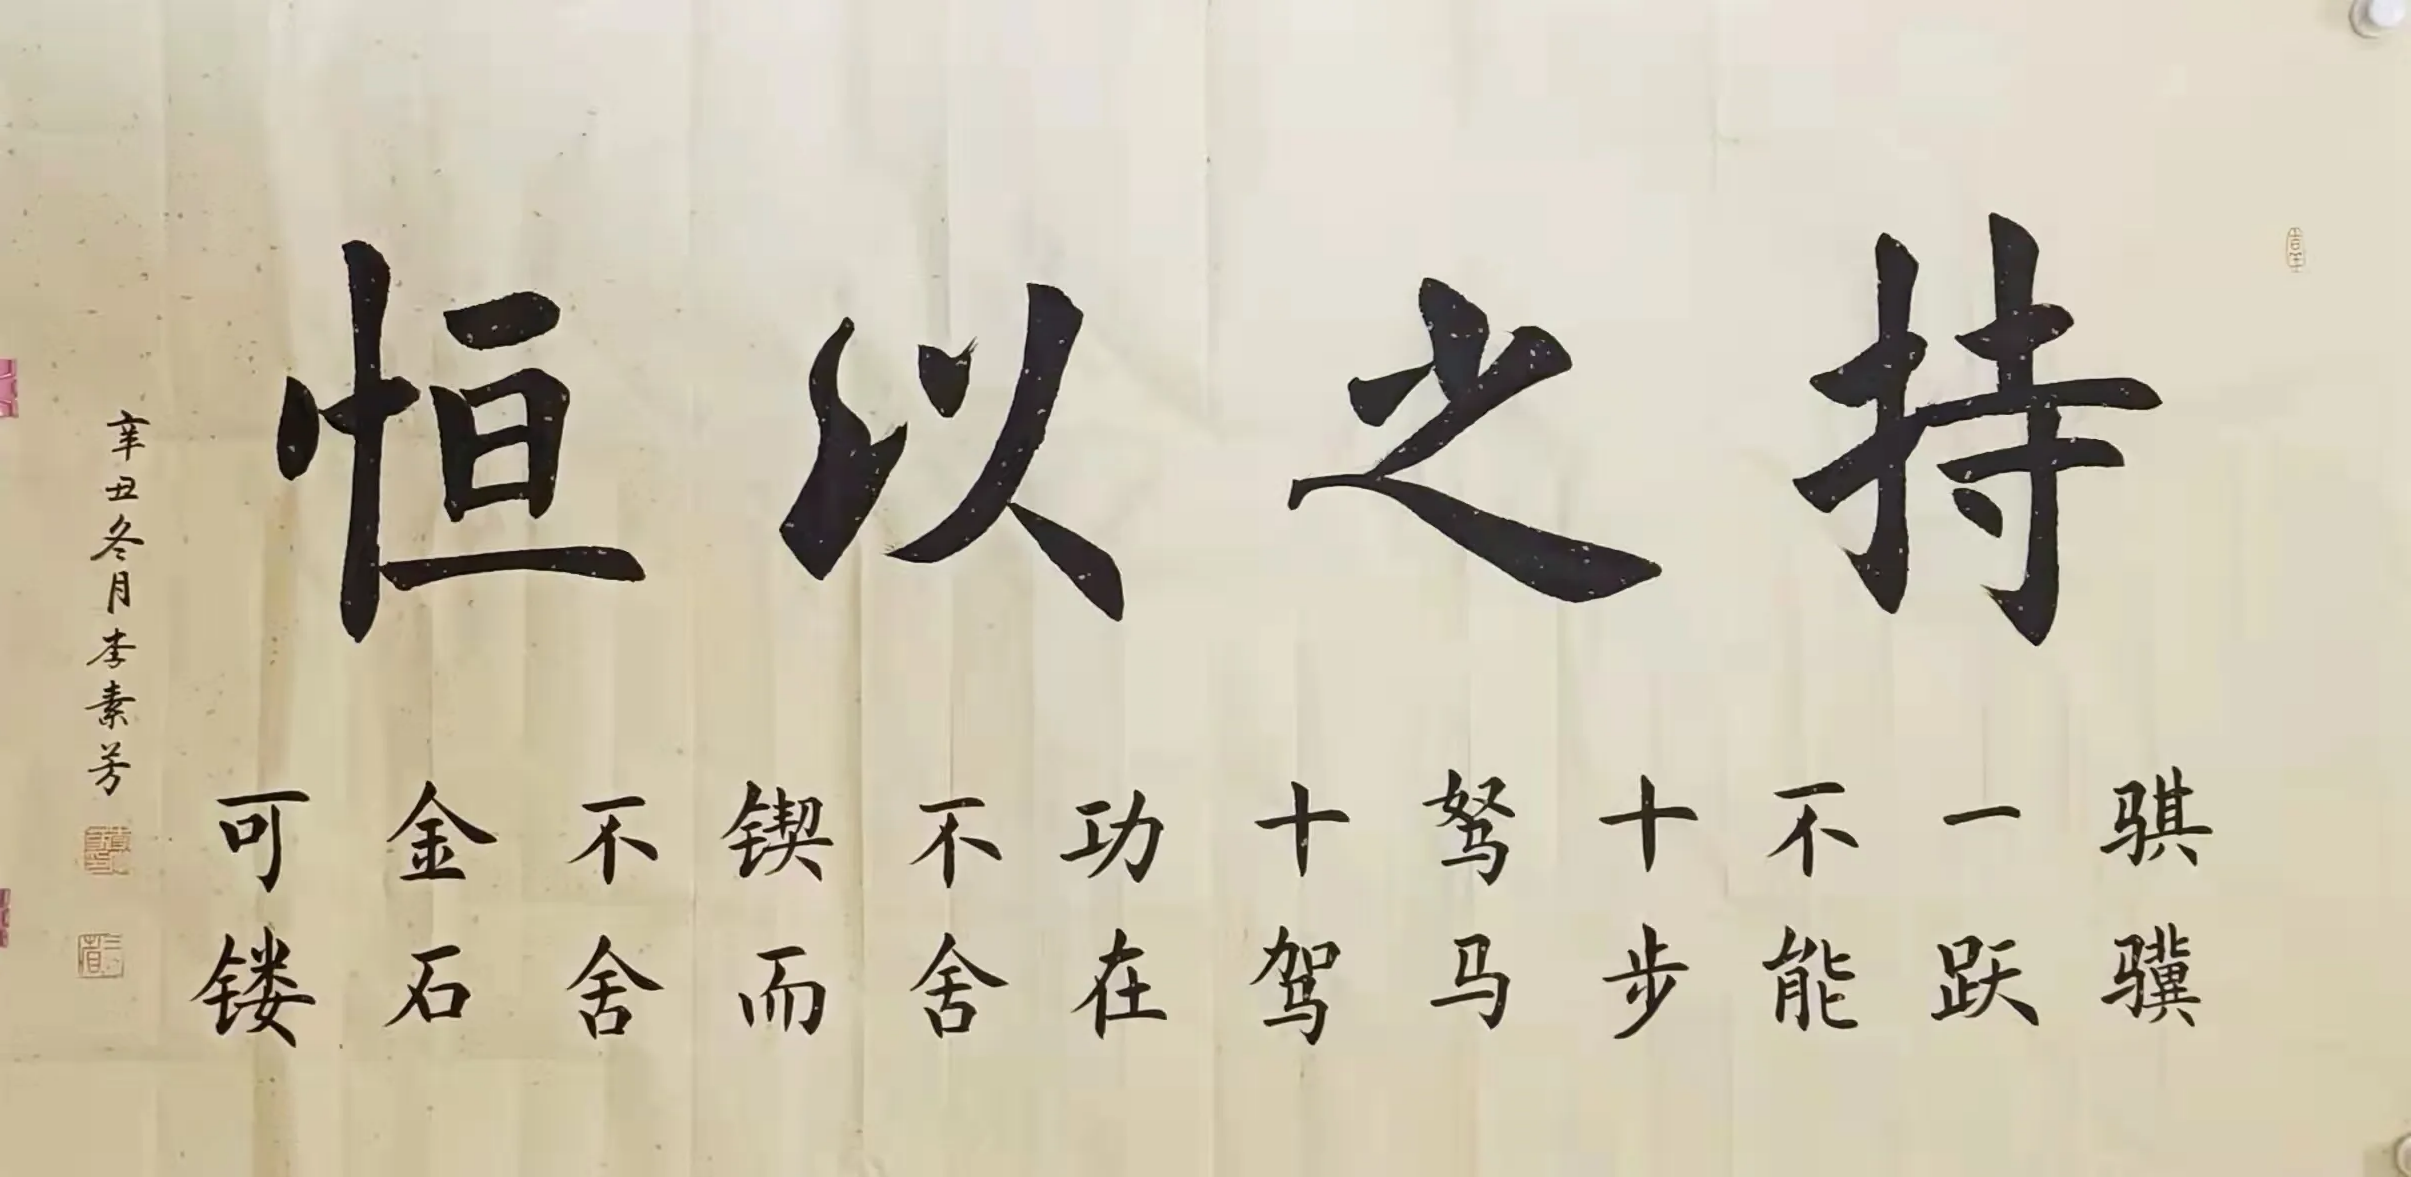 持之以恒
骐骥
一跃
不能
十步
驽马
十驾
功在
不舍
锲而
不舍
金石
可镂
辛丑冬月李素芳